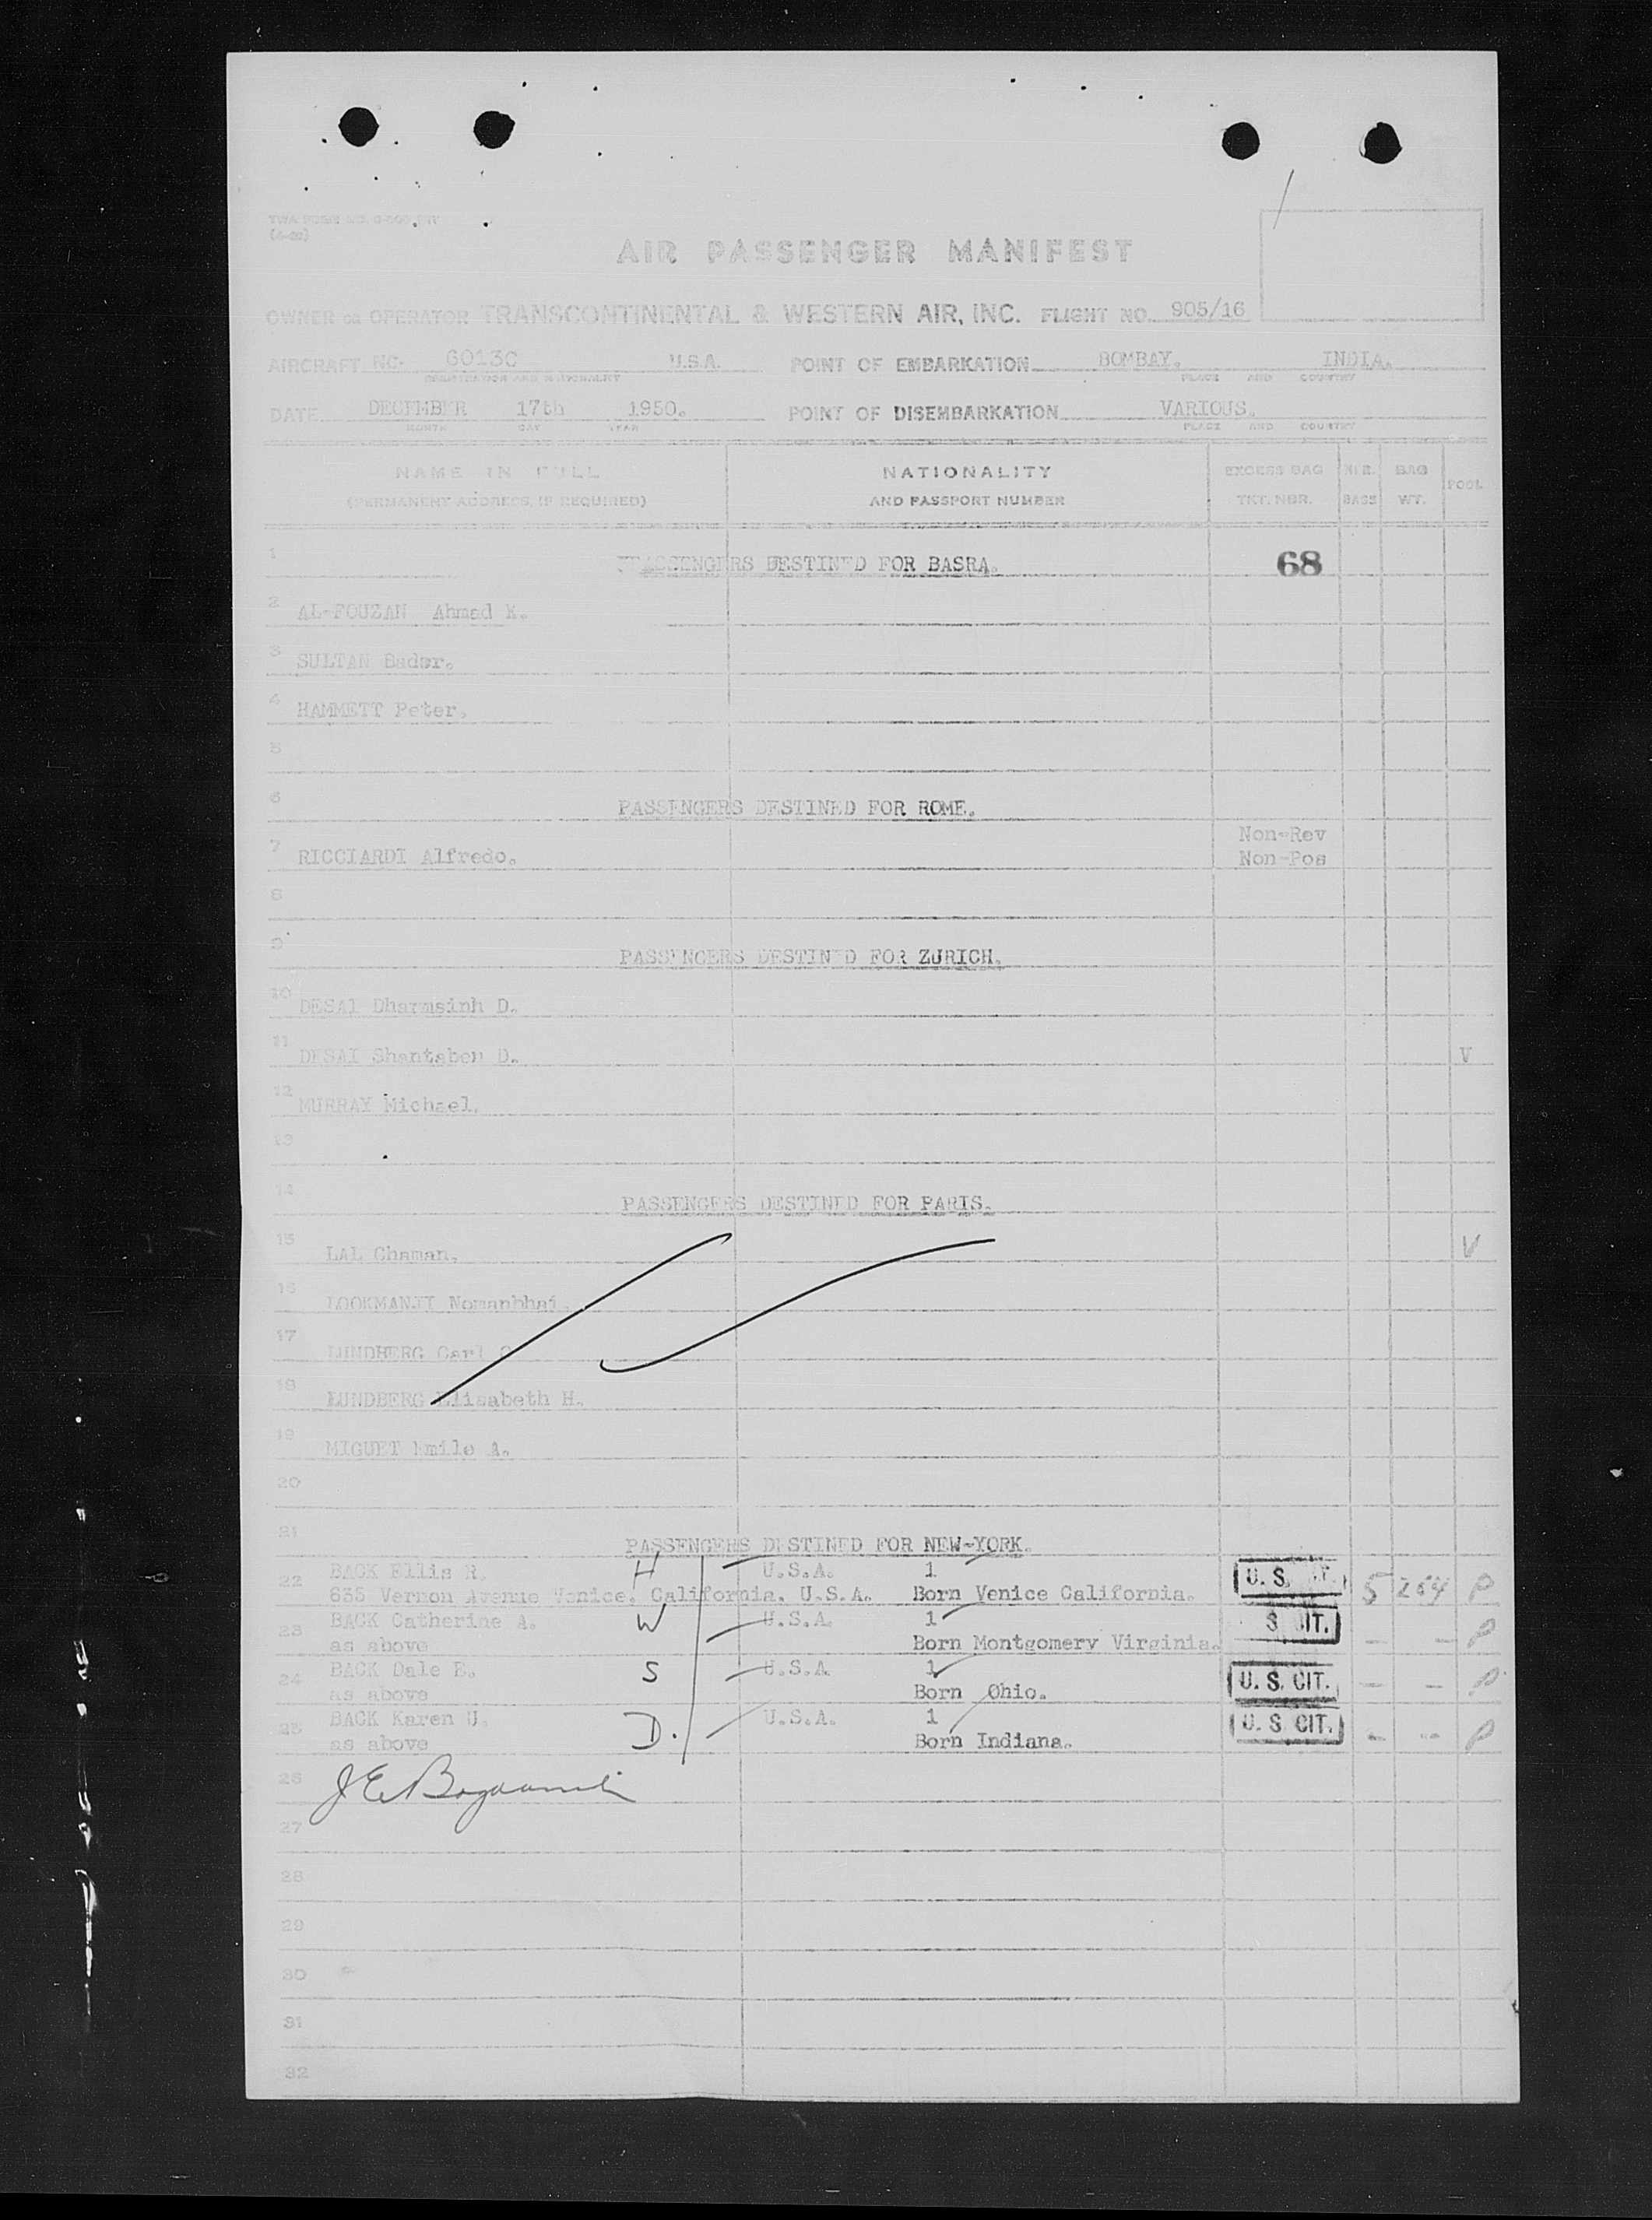 AIR PASSENGER MANIFEST
OWNER OR OPERATOR TRANSCONTINENTAL & WESTERN AIR, INC. FLIGHT NO. 905/16
AIRCRAFT NC- 6013C U.S.A. POINT OF EMBARKATION BOMBAY. INDIA.
REGISTRATION AND NATIONALITY PLACE AND COUNTRY
DATE DECEMBER 17th 1950. POINT OF DISEMBARKATION VARIOUS.
MONTH DAY YEAR PLACE AND COUNTRY
NAME IN FULL NATIONALITY EXCESS BAG NBR. BAG POOL
(PERMANENT ADDRESS, IF REQUIRED) AND PASSPORT NUMBER TKT. NBR. BAGS WT.
1 PASSENGERS DESTINED FOR BASRA. 68
2 AL-FOUZAN Ahmad K.
3 SULTAN Bader.
4 HAMMETT Peter.
5
6 PASSENGERS DESTINED FOR ROME.
Non-Rev
7 RICCIARDI Alfredo. Non-Pos
8
9 PASSENGERS DESTINED FOR ZURICH.
10 DESAI Dharmsinh D.
11 DESAI Shantaben D. V
12 MURRAY Michael.
13
14 PASSENGERS DESTINED FOR PARIS.
15 LAL Chaman. V
16 LOOKMANJI Nomanbhai.
17 LUNDBERG Carl
18 LUNDBERG Elisabeth H.
19 MIGUET Emile A.
20
21 PASSENGERS DESTINED FOR NEW-YORK.
22 BACK Ellis R. H U.S.A. 1 U. S. 5 264 P
635 Vernon Avenue Venice, California, U.S.A. Born Venice California.
23 BACK Catherine A. W U.S.A. 1 S CIT. - - P
as above Born Montgomery Virginia.
24 BACK Dale E. S U.S.A. 1 U. S. CIT. - - P
as above Born Ohio.
25 BACK Karen U. D. U.S.A. 1 U. S. CIT. - - P
as above Born Indiana.
26
27
28
29
30
31
32